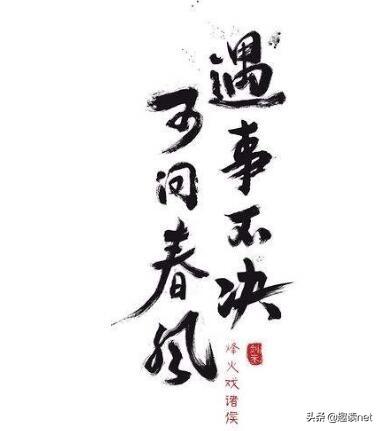 遇事不决
可问春风
烽火戏诸侯
头条 @趣读net